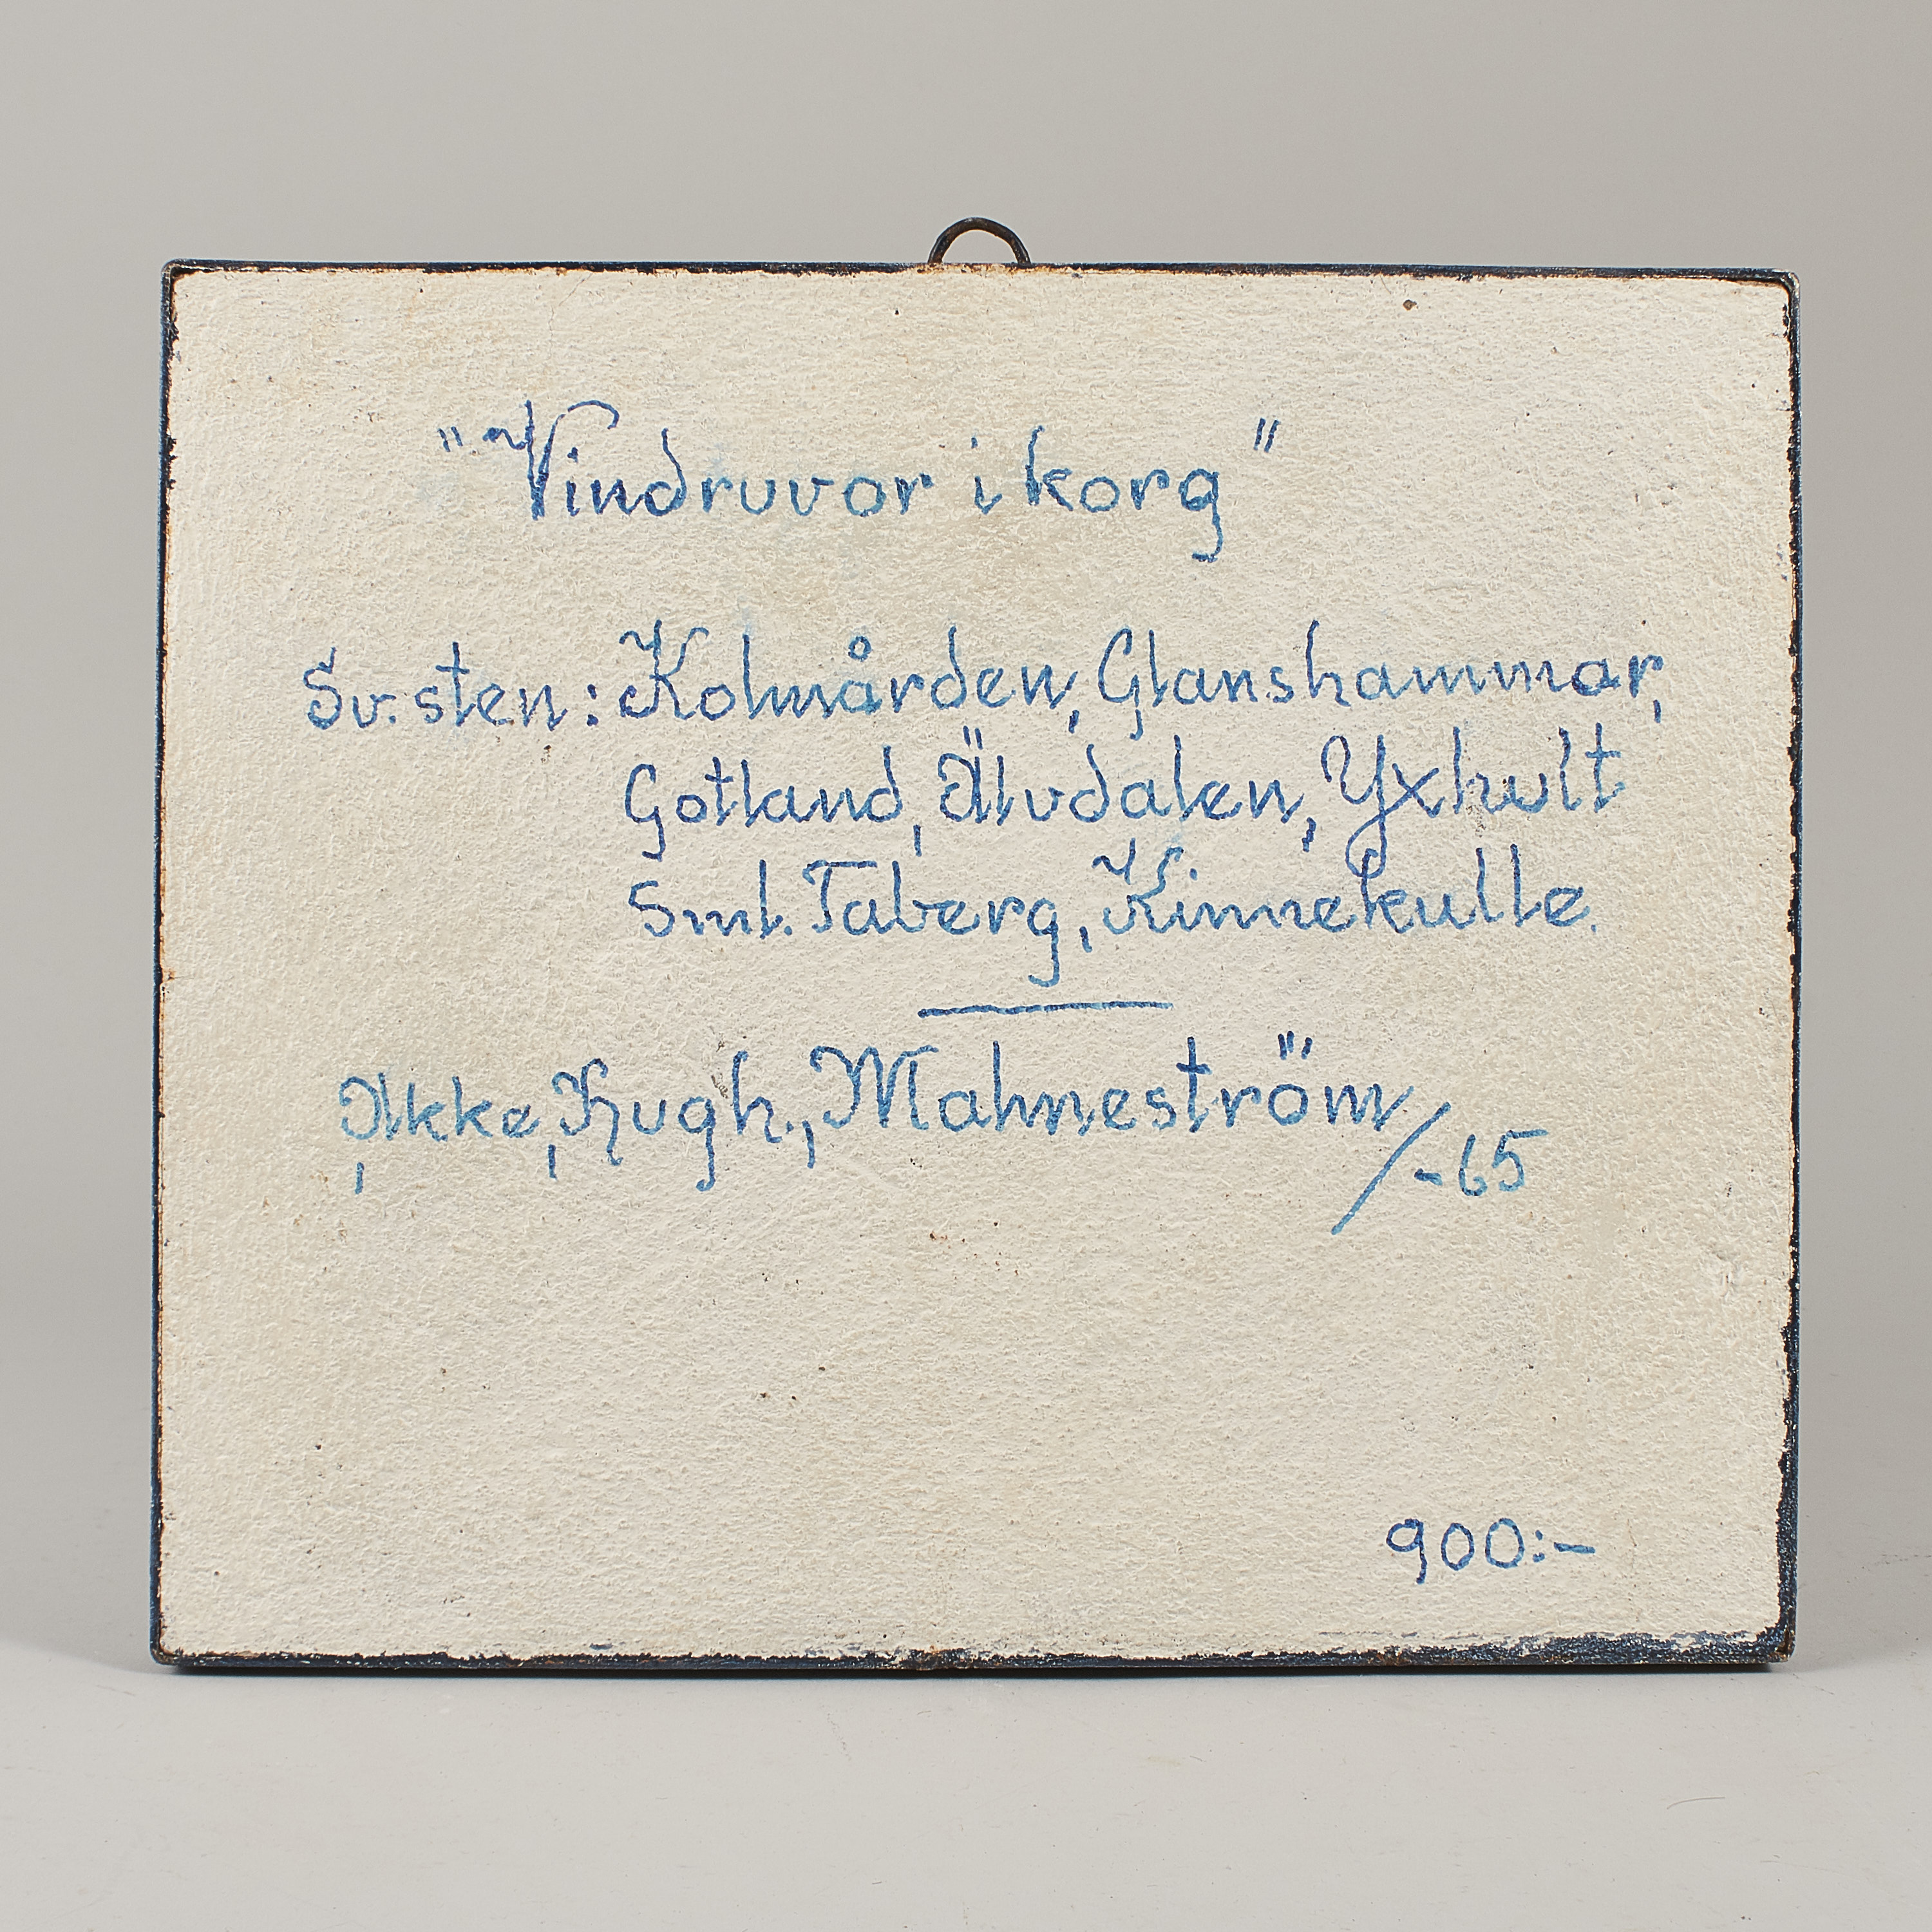 "Vindruvor i korg"
Sv. sten: Kolmården, Glanshammar,
Gotland, Älvdalen, Yxhult
Sml. Taberg, Kinnekulle.
Akke, Hugh., Malmeström/-65
900:-